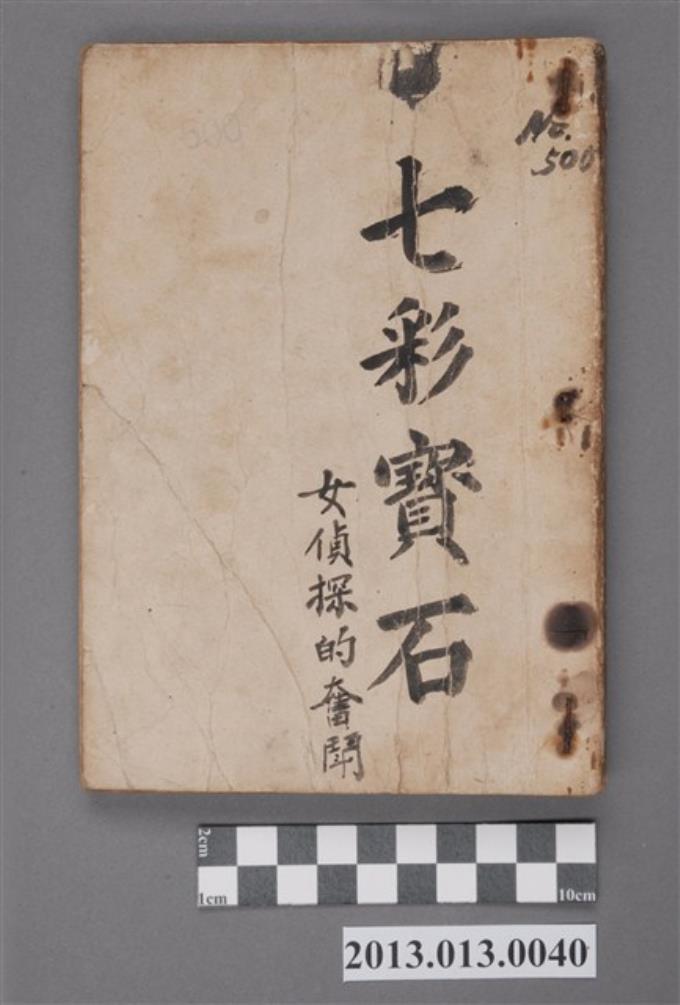 No.
500
七彩寶石
女偵探的奮鬪
2cm
1cm
10cm
2013.013.0040